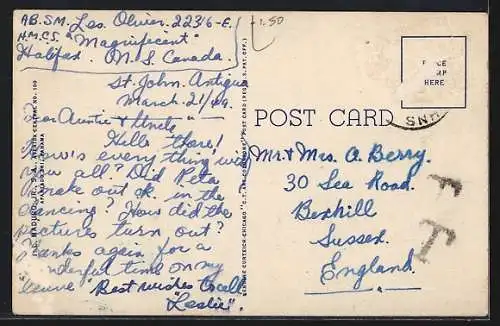 AB.S.M. Les. Oliver. 22316-E.
H.M.C.S. "Magnificent"
Halifax. N.S. Canada.
1.50
St. John, Antigua
March. 21/49.
Dear Auntie & Uncle -
Hello there!
How's everything with
you all? Did Peta
make out ok. in the
dancing? How did the
pictures turn out?
Thanks again for a
wonderful time on my
leave Best wishes to all
"Leslie".
POST CARD
PLACE
STAMP
HERE
Mr. & Mrs. A. Berry.
30 Sea Road.
Bexhill
Sussex.
England.
T